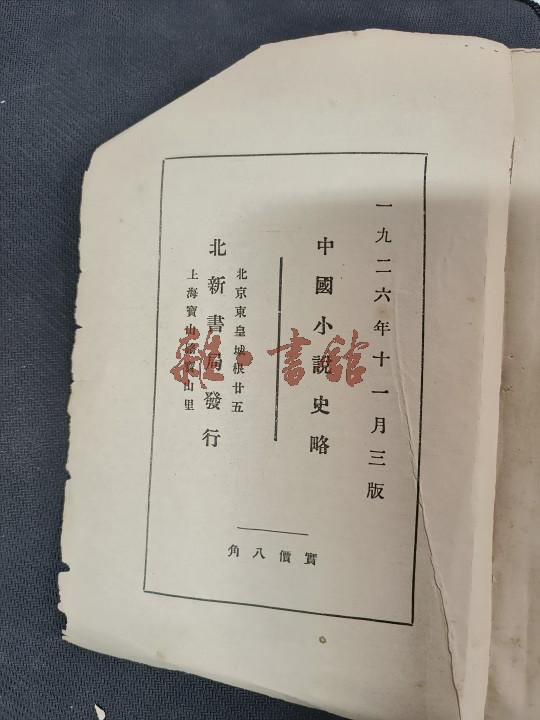 一九二六年十一月三版
中國小說史略
北京東皇城根廿五
北新書局發行
上海寶山路寶山里
實價八角
雜·書館